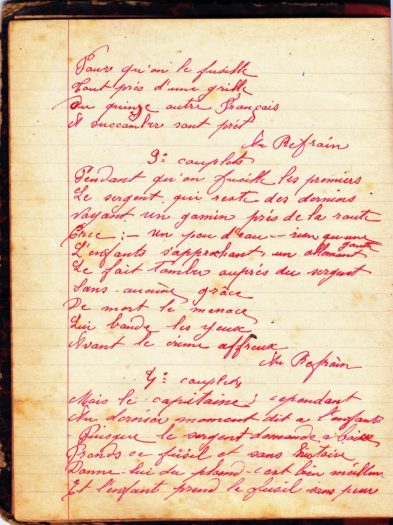 Pour qu'on le fusille
Tout près d'une grille
Ou quinze autre Français
A succomber sont prêt
Au Refrain
3e couplets
Pendant qu'on fusille les premiers
Le sergent qui reste des derniers
Voyant un gamin près de la route
Crie :- Un peu d'eau - rien qu'une goute
L'enfants s'approchant un allemant
Le fait tomber auprès du sergent
Sans aucune grâce
De mort le menace
Lui bande les yeux
Avant le crime affreux
Au Refrain
4e couplets
Mais le capitaine ; cependant
Au dernier moment dit a l'enfants
- Puisque le sergent demande a boire
Prends ce fusil et sans histoire
Donne lui du plomb c'est bien meilleur
Et l'enfant prend le fusil sans peur